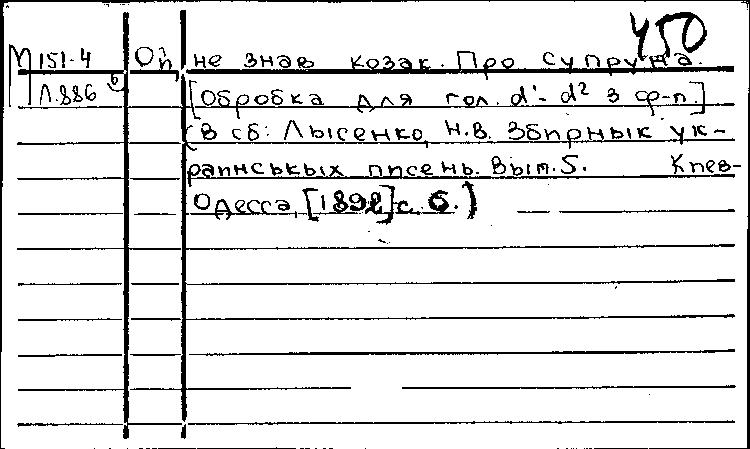 450
М 151-4 Ой, не знав козак. Про Супруна.
Л.886 [Обробка для гол. d¹- d² з ф-п.]
(В сб: Лысенко, Н.В. Збирнык ук-
раинськых писень. Вып.5. Киев-
Одесса, [1892] с. 6.)